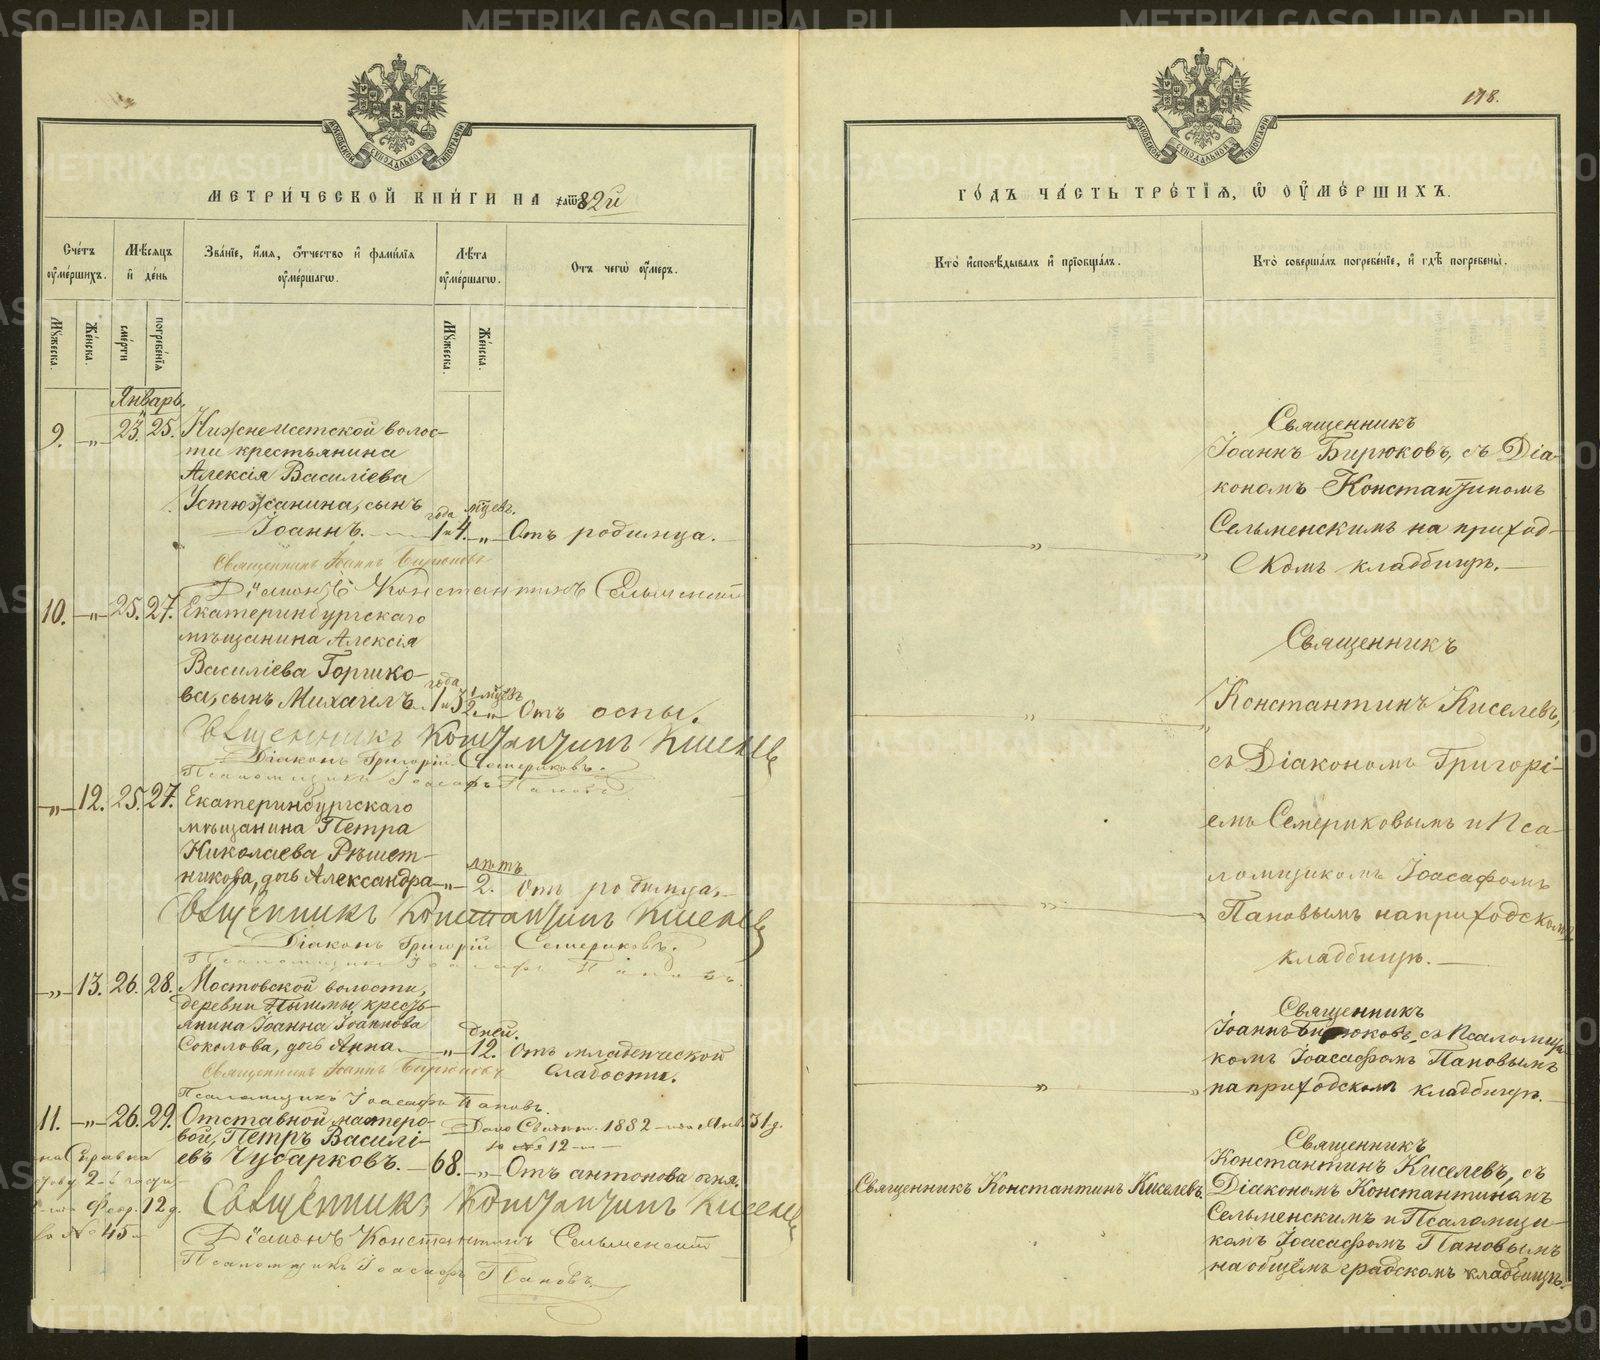 METRIKI.GASO-URAL.RU
МОСКОВСКОЙ СѴНОДАЛЬНОЙ ТИПОГРАФІИ
МЕТРИ́ЧЕСКОЙ КНИ́ГИ НА ҂аѿ82й
Сче́тъ ᲂу҆ме́ршихъ.
Мѣ́сяцъ и҆ де́нь
Зва́нїе, и҆́мя, ѻ҆́тчество и҆ фами́лїя ᲂу҆ме́ршагѡ.
Лѣ́та ᲂу҆ме́ршагѡ.
Ѿ чегѡ̀ ᲂу҆́меръ.
Мꙋ́жеска.
Же́нска.
сме́рти
погребе́нїя
Мꙋ́жеска.
Же́нска.
Январь.
9. -„- 23. 25. Нижнеисетской волос-
ти крестьянина
Алексія Василіева
Устюжанина, сынъ
года мѣсцевъ.
Іоаннъ. 1 и 4. -„- Отъ родимца.
Священникъ Іоаннъ Бирюковъ
Діаконъ Константинъ Сельменскій
10. -„- 25. 27. Екатеринбургскаго
мѣщанина Алексія
Василіева Горшко-
года
ва, сынъ Михаилъ. Отъ оспы.
Священникъ Константинъ Киселевъ
Діаконъ Григорій Семериковъ.
Псаломщикъ Іоасафъ Пановъ
-„- 12. 25. 27. Екатеринбургскаго
мѣщанина Петра
Николаева Рѣшет-
лѣтъ
никова, дочь Александра -„- 2. Отъ родимца.
Священникъ Константинъ Киселевъ
Діаконъ Григорій Семериковъ.
Псаломщикъ Іоасафъ Пановъ.
-„- 13. 26. 28. Мостовской волости,
деревни Пышмы, кресть-
янина Іоанна Іоаннова
дней.
Соколова, дочь Анна. -„- 12. Отъ младенческой
слабости.
Священникъ Іоаннъ Бирюковъ
Псаломщикъ Іоасафъ Пановъ.
11. -„- 26. 29. Отставной мастеро-
вой, Петръ Василі-
евъ Чусарковъ. 68. -„- Отъ антонова огня.
Дано Свидѣт. 1882 -го Янв. 31 д.
за № 12 -м
Справка
2-й
Февр. 12 д.
за № 45 -
Священникъ Константинъ Киселевъ
Діаконъ Константинъ Сельменскій
Псаломщикъ Іоасафъ Пановъ
118.
МОСКОВСКОЙ СѴНОДАЛЬНОЙ ТИПОГРАФІИ
ГО́ДЪ ЧА́СТЬ ТРЕ́ТЇЯ, Ѡ҆ ОУ҆МЕ́РШИХЪ.
Кто̀ и҆сповѣ́дывалъ и҆ прїѡбща́лъ.
Кто̀ соверша́лъ погребе́нїе, и҆ гдѣ̀ погребены̀.
Священникъ
Іоаннъ Бирюковъ, съ Діа-
кономъ Константиномъ
Сельменскимъ на приход-
-„-
скомъ кладбищѣ.
Священникъ
Константинъ Киселевъ,
-„-
съ Діакономъ Григорі-
емъ Семериковымъ и Пса-
ломщикомъ Іоасафомъ
-„-
Пановымъ на приходскомъ
кладбищѣ.
Священникъ
Іоаннъ Бирюковъ, съ Псаломщи-
комъ Іоасафомъ Пановымъ
-„-
на приходскомъ кладбищѣ.
Священникъ
Константинъ Киселевъ, съ
Священникъ Константинъ Киселевъ.
Діакономъ Константиномъ
Сельменскимъ и Псаломщи-
комъ Іоасафомъ Пановымъ
на общемъ градскомъ кладбищѣ.